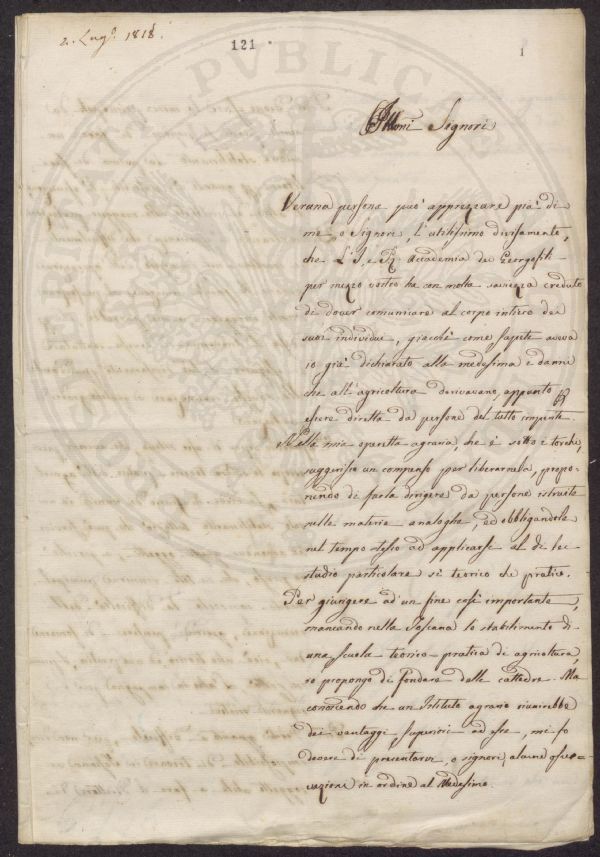 2. Lug.o 1818.
121
1
Ill.mi Signori
Veruna persona può apprezzare più di
me o Signori, l'utilissimo divisamento,
che L'I. e R. Accademia de Georgofili
per mezzo vostro ha con molta saviezza creduto
di dover comunicare al corpo intiero dei
suoi individui, giacchè come sapete aveva
io già dichiarato alla medesima i danni
che all'agricoltura derivavano, appunto p
essere diretta da persone del tutto imperite.
Nella mia operetta agraria, che è sotto i torchi,
suggerisco un compenso per liberarnela, propo-
nendo di farla dirigere da persone istruite
nelle materie analoghe, ed obbligandole
nel tempo stesso ad applicarsi al di lei
studio particolare sì teorico che pratico.
Per giungere ad un fine così importante,
mancando nella Toscana lo stabilimento di
una scuola teorico-pratica di agricoltura,
io propongo di fondare delle cattedre. Ma
conoscendo che un Istituto agrario riunirebbe
dei vantaggi superiori ad esse, mi fo
dovere di presentarvi, o signori, alcune osser=
vazioni in ordine al Medesimo.